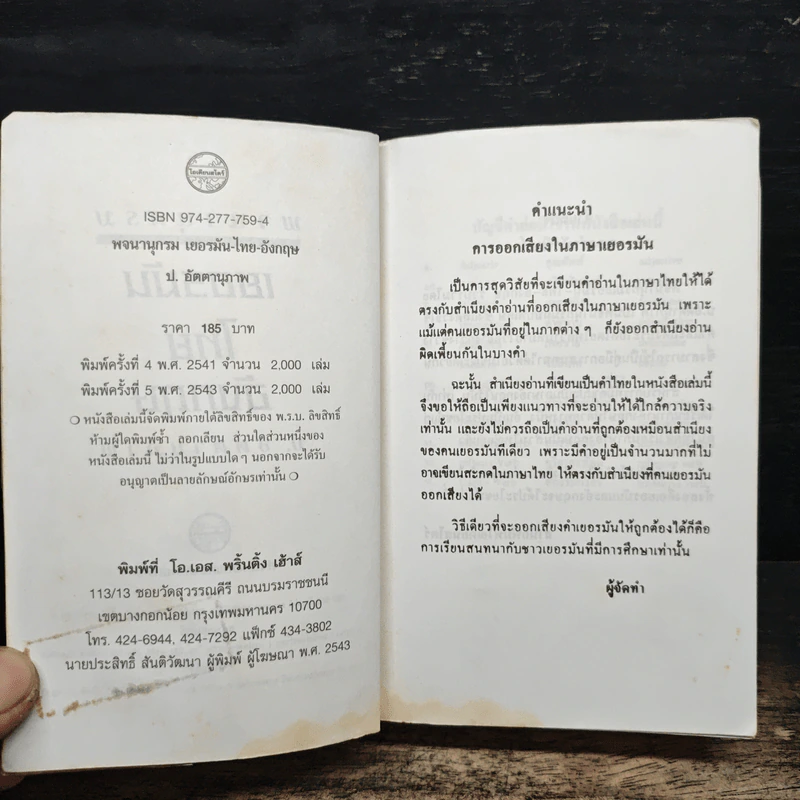 โอเดียนสโตร์
ISBN 974-277-759-4
พจนานุกรม เยอรมัน-ไทย-อังกฤษ
ป. อัตตานุภาพ
ราคา 185 บาท
พิมพ์ครั้งที่ 4 พ.ศ. 2541 จำนวน 2,000 เล่ม
พิมพ์ครั้งที่ 5 พ.ศ. 2543 จำนวน 2,000 เล่ม
❍ หนังสือเล่มนี้จัดพิมพ์ภายใต้ลิขสิทธิ์ของ พ.ร.บ. ลิขสิทธิ์
ห้ามผู้ใดพิมพ์ซ้ำ ลอกเลียน ส่วนใดส่วนหนึ่งของ
หนังสือเล่มนี้ ไม่ว่าในรูปแบบใด ๆ นอกจากจะได้รับ
อนุญาตเป็นลายลักษณ์อักษรเท่านั้น ❍
พิมพ์ที่ โอ.เอส. พริ้นติ้ง เฮ้าส์
113/13 ซอยวัดสุวรรณคีรี ถนนบรมราชชนนี
เขตบางกอกน้อย กรุงเทพมหานคร 10700
โทร. 424-6944, 424-7292 แฟ็กซ์ 434-3802
นายประสิทธิ์ สันติวัฒนา ผู้พิมพ์ ผู้โฆษณา พ.ศ. 2543
คำแนะนำ
การออกเสียงในภาษาเยอรมัน
เป็นการสุดวิสัยที่จะเขียนคำอ่านในภาษาไทยให้ได้
ตรงกับสำเนียงคำอ่านที่ออกเสียงในภาษาเยอรมัน เพราะ
แม้แต่คนเยอรมันที่อยู่ในภาคต่าง ๆ ก็ยังออกสำเนียงอ่าน
ผิดเพี้ยนกันในบางคำ
ฉะนั้น สำเนียงอ่านที่เขียนเป็นคำไทยในหนังสือเล่มนี้
จึงขอให้ถือเป็นเพียงแนวทางที่จะอ่านให้ได้ใกล้ความจริง
เท่านั้น และยังไม่ควรถือเป็นคำอ่านที่ถูกต้องเหมือนสำเนียง
ของคนเยอรมันทีเดียว เพราะมีคำอยู่เป็นจำนวนมากที่ไม่
อาจเขียนสะกดในภาษาไทย ให้ตรงกับสำเนียงที่คนเยอรมัน
ออกเสียงได้
วิธีเดียวที่จะออกเสียงคำเยอรมันให้ถูกต้องได้ก็คือ
การเรียนสนทนากับชาวเยอรมันที่มีการศึกษาเท่านั้น
ผู้จัดทำ